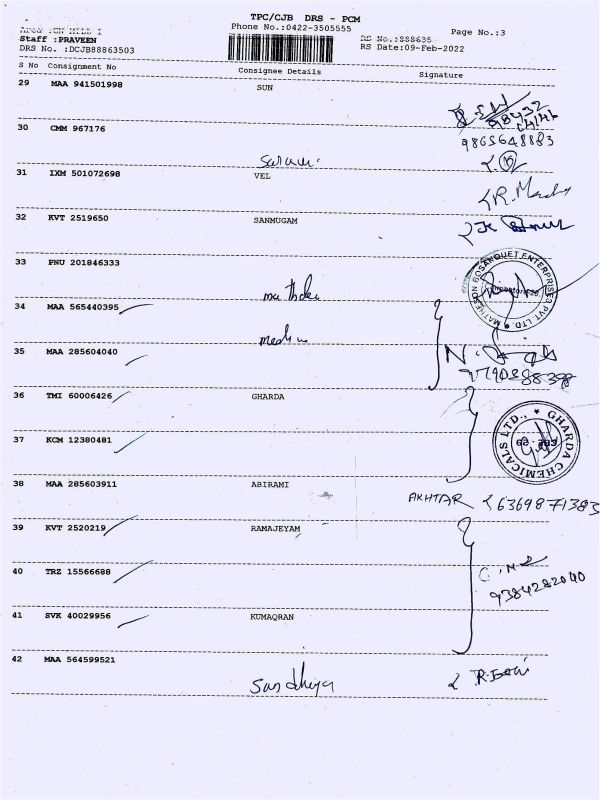 TPC/CJB DRS - PCM
Phone No.:0422-3505555
Page No.:3
Staff :PRAVEEN
RS No.:888635
DRS No. :DCJB88863503
RS Date:09-Feb-2022
S No Consignment No Consignee Details Signature
29 MAA 941501998 SUN
98432
30 CMM 967176
9865648883
31 IXM 501072698 VEL
32 KVT 2519650 SANMUGAM
33 PNU 201846333
MATHESON BOSANQUET ENTERPRISES PVT. LTD.
34 MAA 565440395
35 MAA 285604040
36 TMI 60006426 GHARDA
37 KCM 12380481
GHARDA CHEMICALS LTD.,
38 MAA 285603911 ABIRAMI
AKHTAR 6369871383
39 KVT 2520219 RAMAJEYAM
40 TRZ 15566688
9384282040
41 SVK 40029956 KUMAQRAN
42 MAA 564599521
Sandhiya